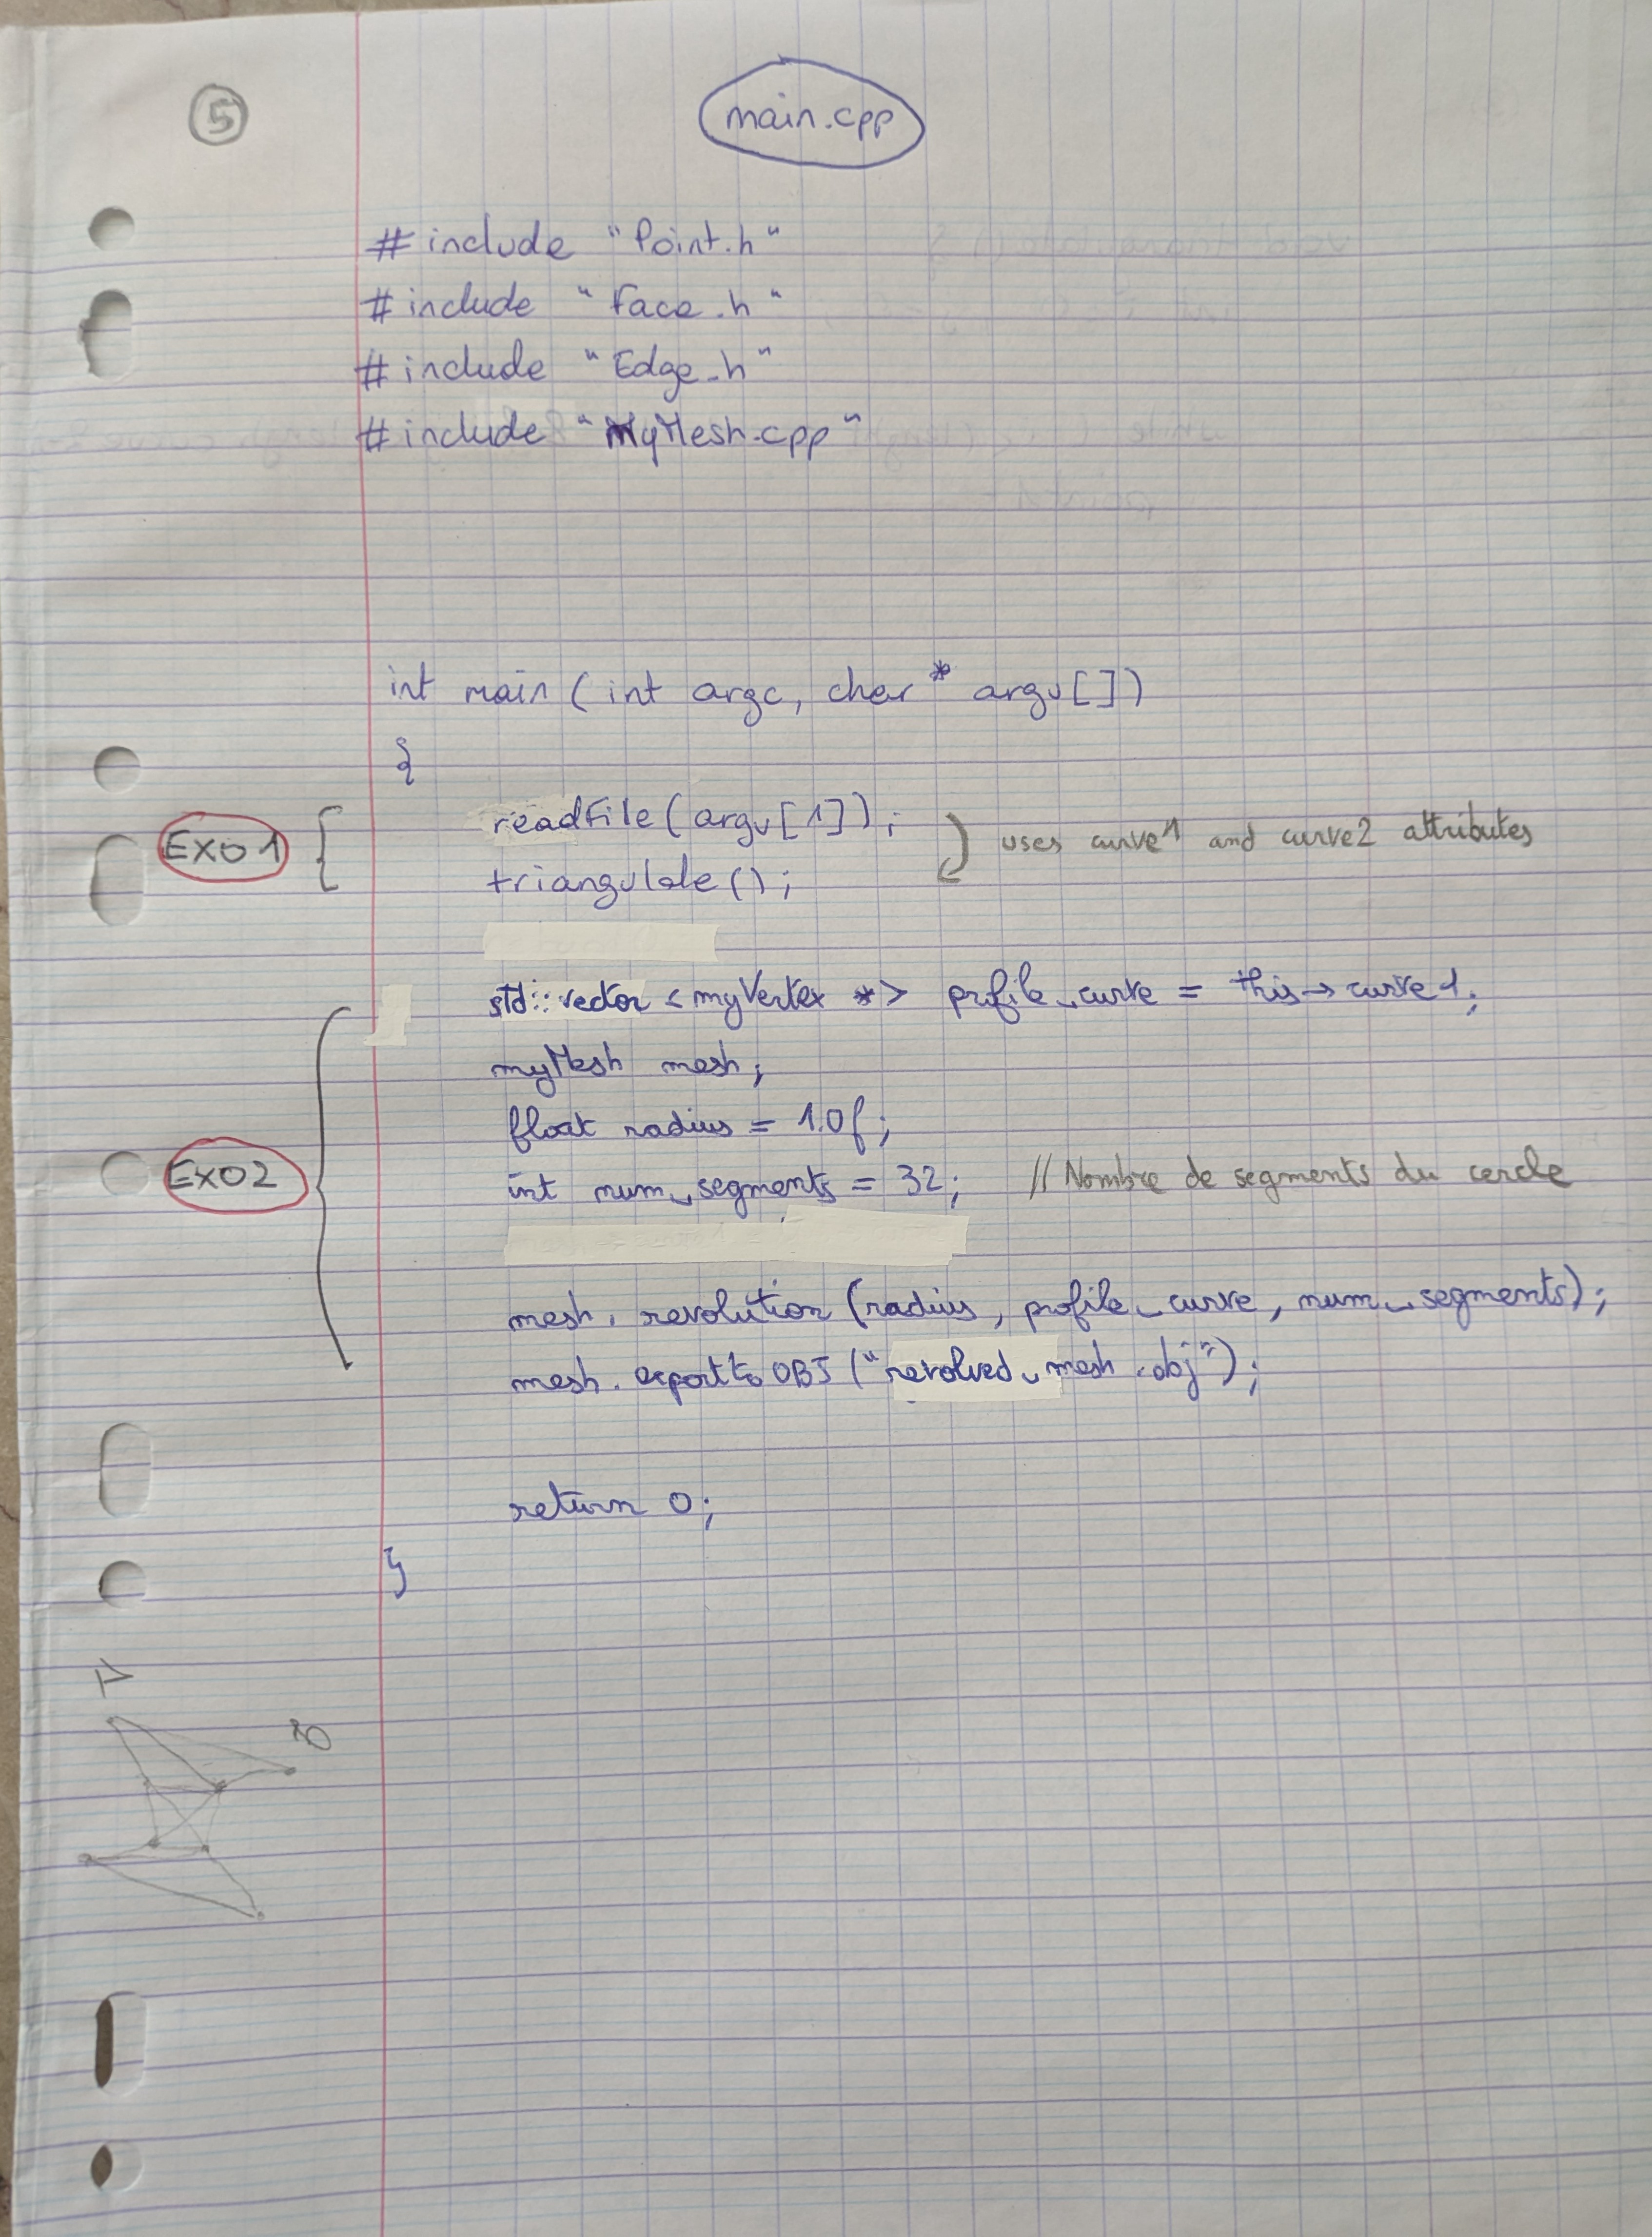 5
main.cpp
#include "Point.h"
#include "Face.h"
#include "Edge.h"
#include "MyMesh.cpp"
int main (int argc, char* argv[])
{
Exo1
readFile(argv[1]);
triangulate();
uses curve1 and curve2 attributes
std::vector <myVertex *> profile_curve = this->curve1;
myMesh mesh;
float radius = 1.0f;
Exo2
int num_segments = 32; // Nombre de segments du cercle
mesh.revolution (radius, profile_curve, num_segments);
mesh.exporttoOBJ ("revolved_mesh.obj");
return 0;
}